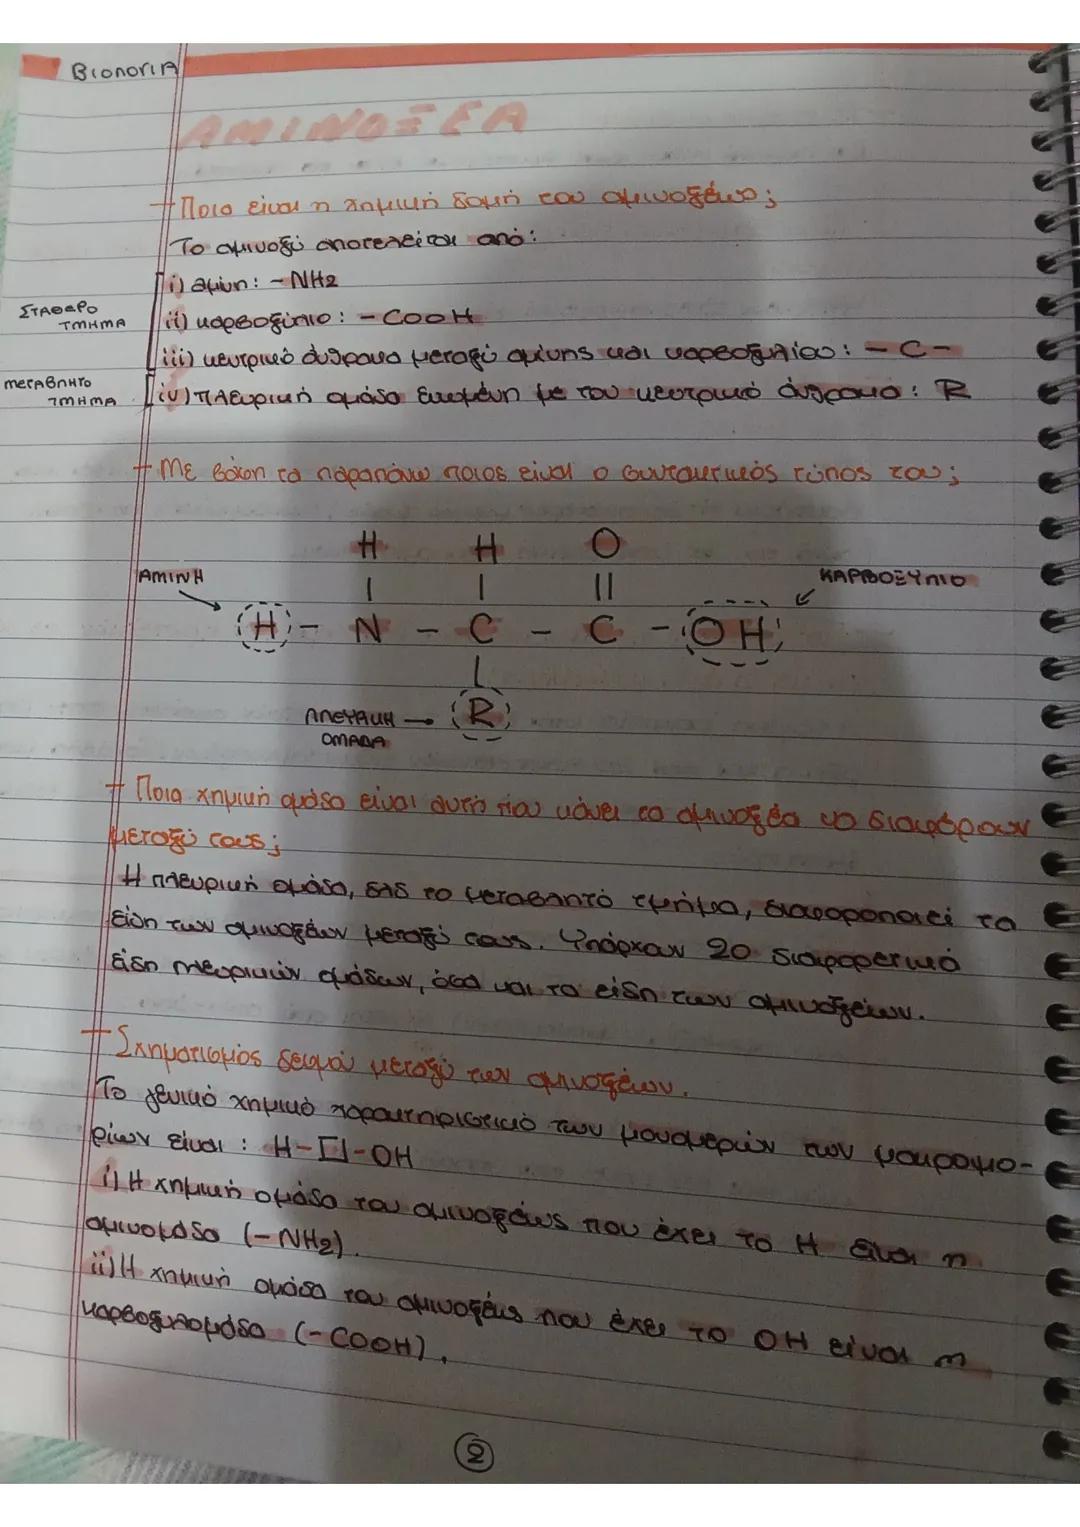 ΒΙΟΛΟΓΙΑ
ΑΜΙΝΟΞΕΑ
Ποια είναι η χημική δομή του αμινοξέως;
Το αμινοξύ αποτελείται από:
i) αμίνη: - NH2
ΣΤΑΘΕΡΟ ΤΜΗΜΑ
ii) καρβοξύλιο: - COOH
iii) κεντρικό άνθρακα μεταξύ αμίνης και καρβοξυλίου: - C -
ΜΕΤΑΒΛΗΤΟ ΤΜΗΜΑ
iv) πλευρική ομάδα ενωμένη με τον κεντρικό άνθρακα: R
Με βάση τα παραπάνω ποιος είναι ο συντακτικός τύπος του;
H H O
ΑΜΙΝΗ
ΚΑΡΒΟΞΥΛΙΟ
H - N - C - C - OH
ΠΛΕΥΡΙΚΗ → R
ΟΜΑΔΑ
Ποια χημική ομάδα είναι αυτή που κάνει τα αμινοξέα να διαφέρουν
μεταξύ τους;
Η πλευρική ομάδα, δλδ το μεταβλητό τμήμα, διαφοροποιεί τα
είδη των αμινοξέων μεταξύ τους. Υπάρχουν 20 διαφορετικά
είδη πλευρικών ομάδων, όσα και τα είδη των αμινοξέων.
Σχηματισμός δεσμού μεταξύ των αμινοξέων.
Το γενικό χημικό χαρακτηριστικό των μονομερών των μακρομο-
ρίων είναι: H-[]-OH
i) Η χημική ομάδα του αμινοξέως που έχει το H είναι η
αμινομάδα (-NH2).
ii) Η χημική ομάδα του αμινοξέως που έχει το OH είναι η
καρβοξυλομάδα (-COOH).
2